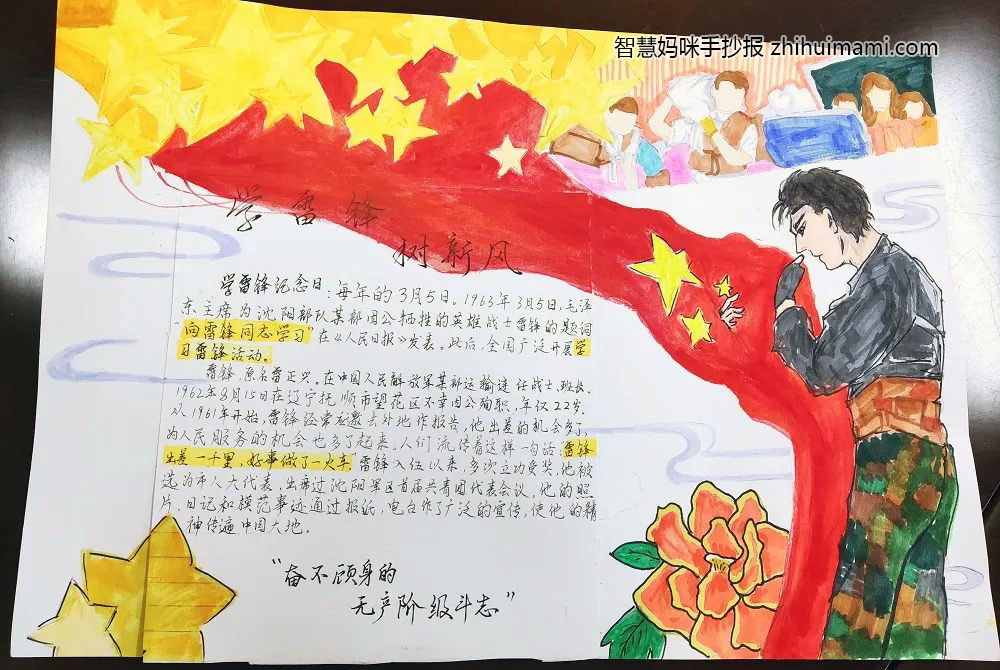 智慧妈咪手抄报 zhihuimami.com
学雷锋
树新风
学雷锋纪念日：每年的3月5日。1963年3月5日，毛泽
东主席为沈阳部队某部因公牺牲的英雄战士雷锋的题词
“向雷锋同志学习”在《人民日报》发表。此后，全国广泛开展学
习雷锋活动。
雷锋，原名雷正兴。在中国人民解放军某部运输连任战士、班长。
1962年8月15日在辽宁抚顺市望花区不幸因公殉职，年仅22岁。
从1961年开始，雷锋经常应邀去外地作报告，他出差的机会多了，
为人民服务的机会也多了起来。人们流传着这样一句话“雷锋
出差一千里，好事做了一火车”雷锋入伍以来，多次立功受奖，他被
选为市人大代表，出席过沈阳军区首届共青团代表会议，他的照
片、日记和模范事迹通过报纸，电台作了广泛的宣传，使他的精
神传遍中国大地。
“奋不顾身的
无产阶级斗志”